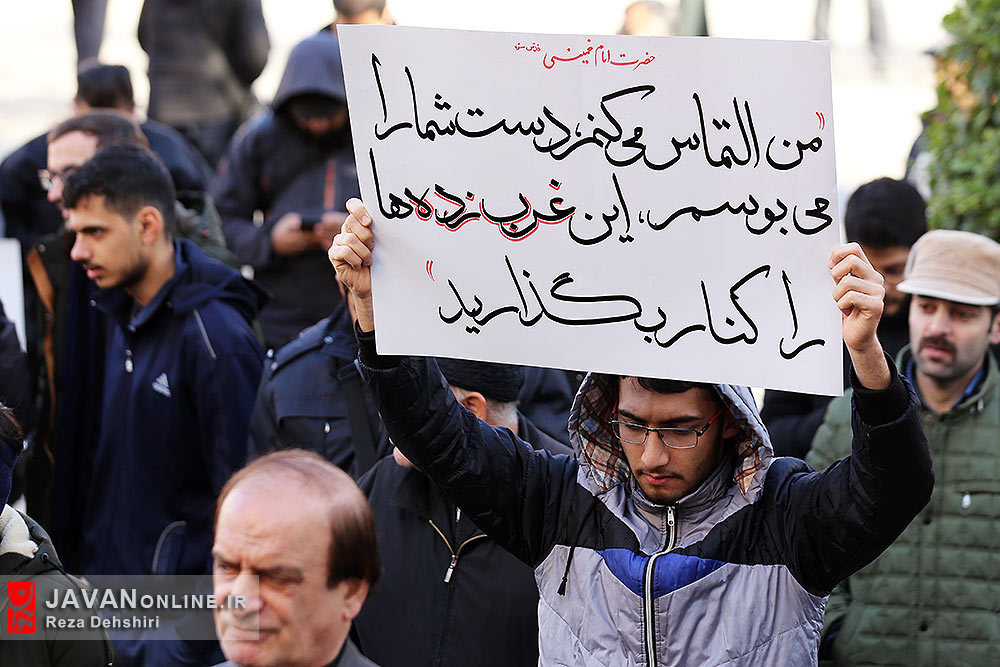 حضرت امام خمینی قدس سره
"من التماس می‌کنم، دست شما را
می‌بوسم، این غرب زده‌ها
را کنار بگذارید"
JAVANONLINE.IR
Reza Dehshiri